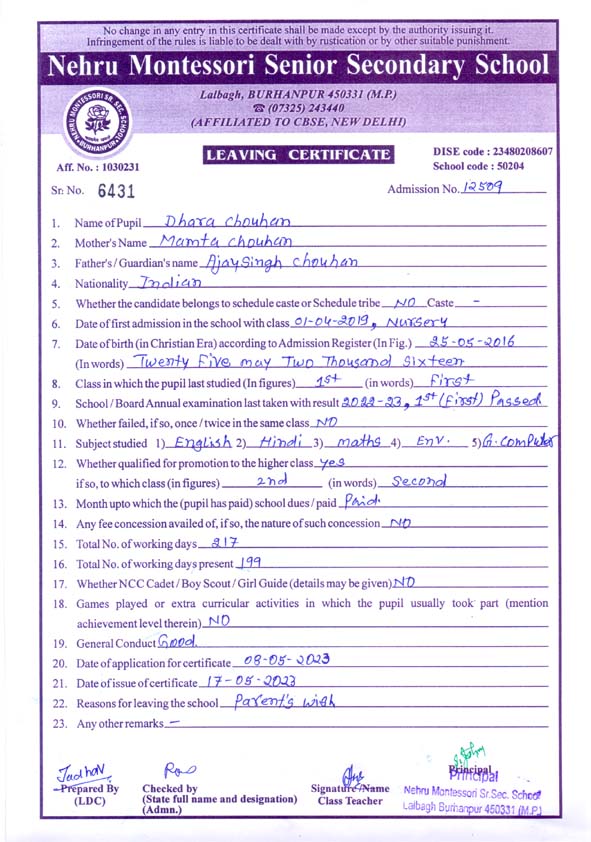 No change in any entry in this certificate shall be made except by the authority issuing it.
Infringement of the rules is liable to be dealt with by rustication or by other suitable punishment.
Nehru Montessori Senior Secondary School
Lalbagh, BURHANPUR 450331 (M.P.)
☎ (07325) 243440
(AFFILIATED TO CBSE, NEW DELHI)
NEHRU MONTESSORI SR. SEC. SCHOOL
BURHANPUR
LEAVING CERTIFICATE
DISE code : 23480208607
Aff. No. : 1030231
School code : 50204
Sr. No. 6431
Admission No. 12509
1. Name of Pupil Dhara Chouhan
2. Mother's Name Mamta Chouhan
3. Father's / Guardian's name Ajay Singh Chouhan
4. Nationality Indian
5. Whether the candidate belongs to schedule caste or Schedule tribe NO Caste –
6. Date of first admission in the school with class 01-04-2019, Nursery
7. Date of birth (in Christian Era) according to Admission Register (In Fig.) 25-05-2016
(In words) Twenty Five may Two Thousand Sixteen
8. Class in which the pupil last studied (In figures) 1st (in words) First
9. School / Board Annual examination last taken with result 2022-23, 1st (First) Passed
10. Whether failed, if so, once / twice in the same class NO
11. Subject studied 1) English 2) Hindi 3) maths 4) Env. 5) G. Computer
12. Whether qualified for promotion to the higher class Yes
if so, to which class (in figures) 2nd (in words) Second
13. Month upto which the (pupil has paid) school dues / paid Paid.
14. Any fee concession availed of, if so, the nature of such concession NO
15. Total No. of working days 217
16. Total No. of working days present 199
17. Whether NCC Cadet / Boy Scout / Girl Guide (details may be given) NO
18. Games played or extra curricular activities in which the pupil usually took part (mention
achievement level therein) NO
19. General Conduct Good.
20. Date of application for certificate 08-05-2023
21. Date of issue of certificate 17-05-2023
22. Reasons for leaving the school Parent's wish
23. Any other remarks –
Jadhav
Prepared By
(LDC)
Checked by
(State full name and designation)
(Admn.)
Signature/Name
Class Teacher
Principal
Principal
Nehru Montessori Sr.Sec. School
Lalbagh Burhanpur 450331 (M.P.)